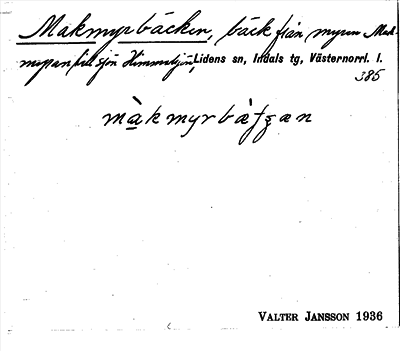 Makmyrbäcken, bäck från myren Mak-
myran till sjön Himmelsjön, Lidens sn, Indals tg, Västernorrl. l.
385
màkmyrbæ̀ʃʒæn
VALTER JANSSON 1936